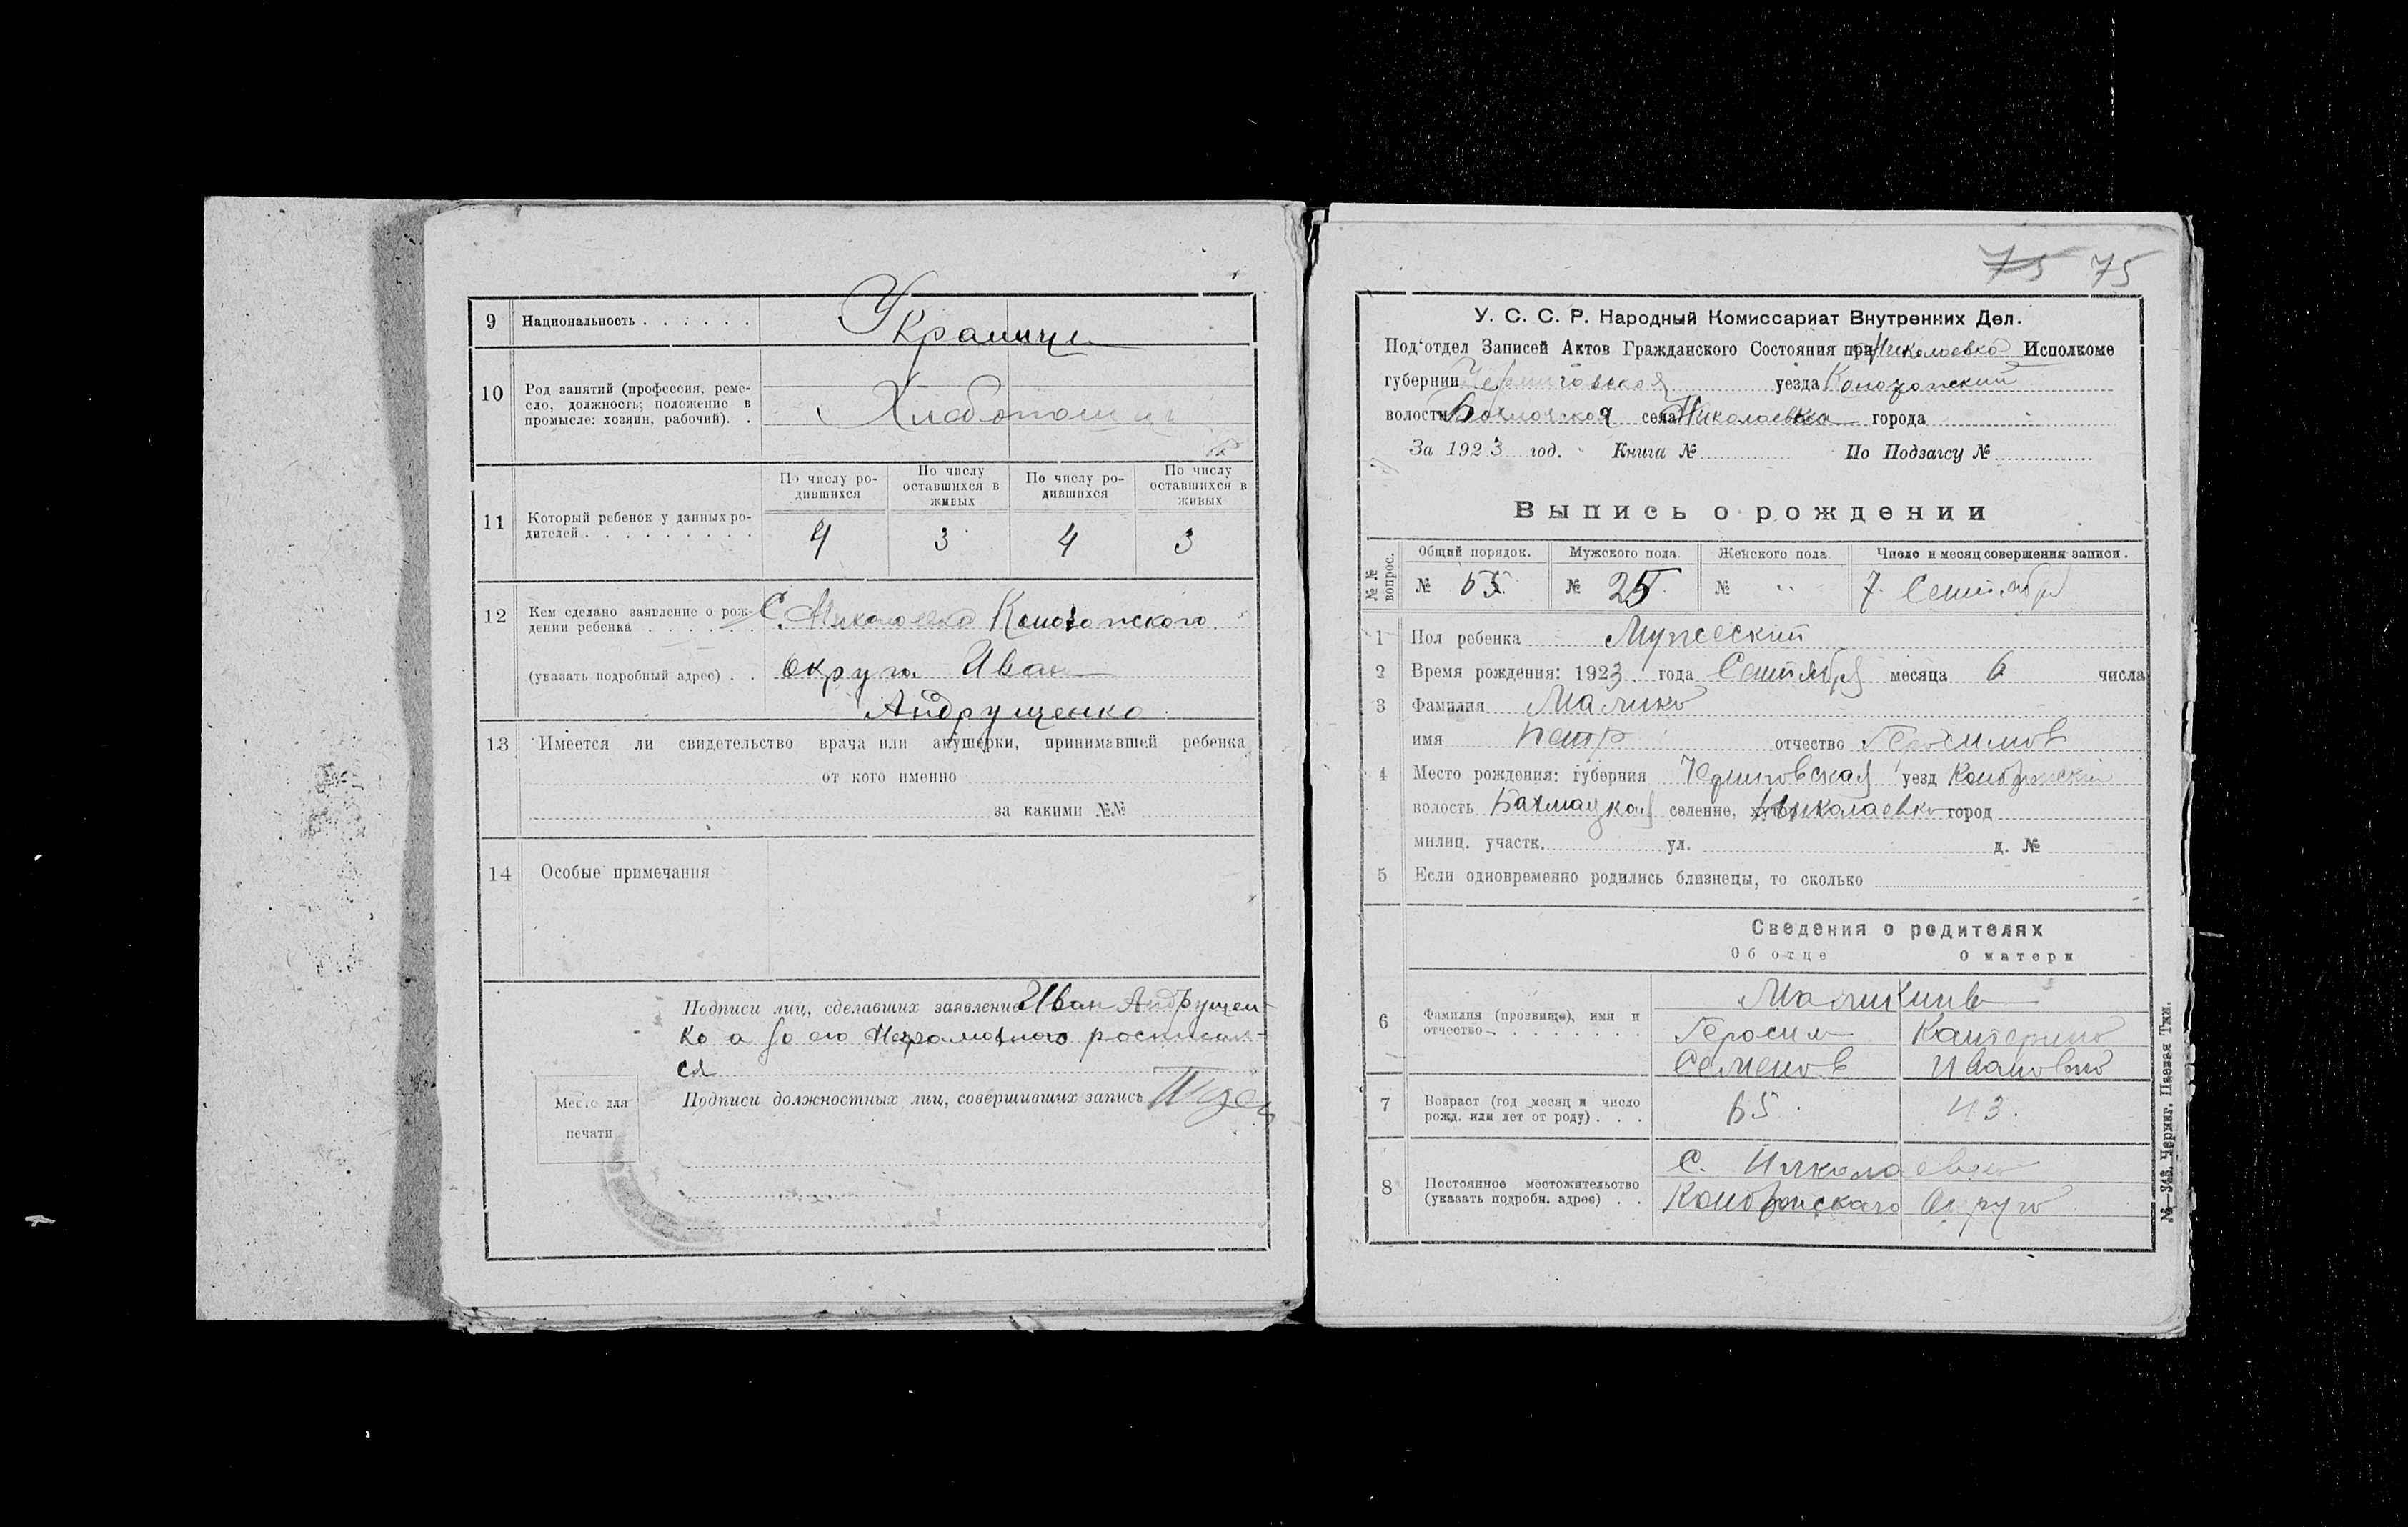 9 Национальность
Украинци
10 Род занятий (профессия, реме-
сло, должность; положение в
промысле: хозяин, рабочий).
Хлебопашцы
11 Который ребенок у данных ро-
дителей
По числу ро-
дившихся
По числу
оставшихся в
живых
По числу ро-
дившихся
По числу
оставшихся в
живых
4 3 4 3
12 Кем сделано заявление о рож-
дении ребенка
(указать подробный адрес)
С. Николаевка Конотопского
округа Иван
Андрущенко
13 Имеется ли свидетельство врача или акушерки, принимавшей ребенка
от кого именно
за какими №№
14 Особые примечания
Подписи лиц, сделавших заявление Иван Андрущен-
ко а за его неграмотного росписал-
ся
Подписи должностных лиц, совершивших запись
Место для
печати
75 75
У. С. С. Р. Народный Комиссариат Внутренних Дел.
Под'отдел Записей Актов Гражданского Состояния при Николаевка Исполкоме
губернии Черниговская уезда Конотопский
волости Бахмачская села Николаевка города
За 1923 год. Книга № По Подзагсу №
Выпись о рождении
№№ вопрос.
Общий порядок. Мужского пола. Женского пола. Число и месяц совершения записи.
№ 55 № 25 № " 7. Сентября
1 Пол ребенка Мужеский
2 Время рождения: 1923 года Сентября месяца 6 числа
3 Фамилия
имя Петр отчество Герасимов
4 Место рождения: губерния Черниговская уезд Конотопский
волость Бахмацкая селение, Николаевка город
милиц. участк. ул. д. №
5 Если одновременно родились близнецы, то сколько
Сведения о родителях
Об отце О матери
6 Фамилия (прозвище), имя и
отчество
Герасим Катерина
Семенов Ивановна
7 Возраст (год месяц и число
рожд. или лет от роду)
65 43.
8 Постоянное местожительство
(указать подробн. адрес)
С. Николаевка
Конотопского Округа
№ 343. Черниг. Цвевая Тжи.